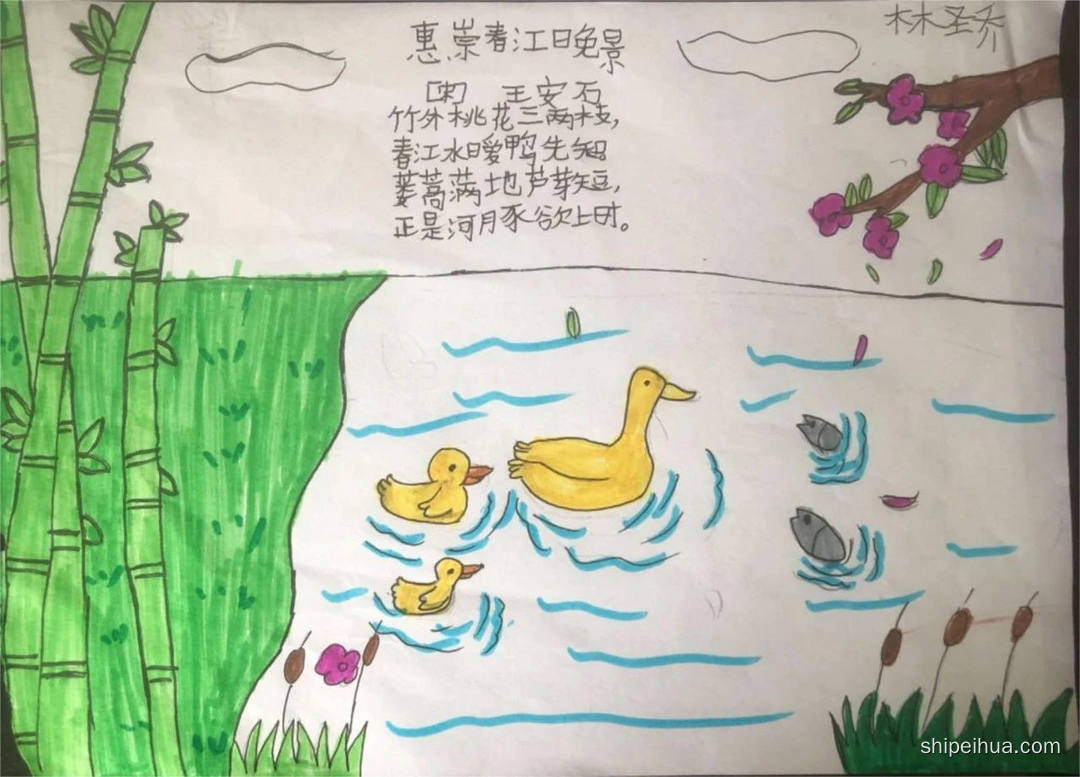 林圣乔
惠崇春江晚景
[宋] 王安石
竹外桃花三两枝,
春江水暖鸭先知
蒌蒿满地芦芽短,
正是河豚欲上时。
shipeihua.com